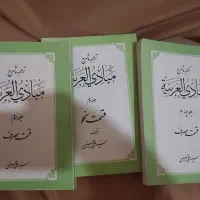 ترجمه و شرح
مبادئ العربیه
جلد چهارم
قسمت صرف
سید علی حسینی
ترجمه و شرح
مبادئ العربیه
قسمت نحو
سید علی حسینی
ترجمه و شرح
مبادئ العربیه
جلد سوم
قسمت صرف
سید علی حسینی